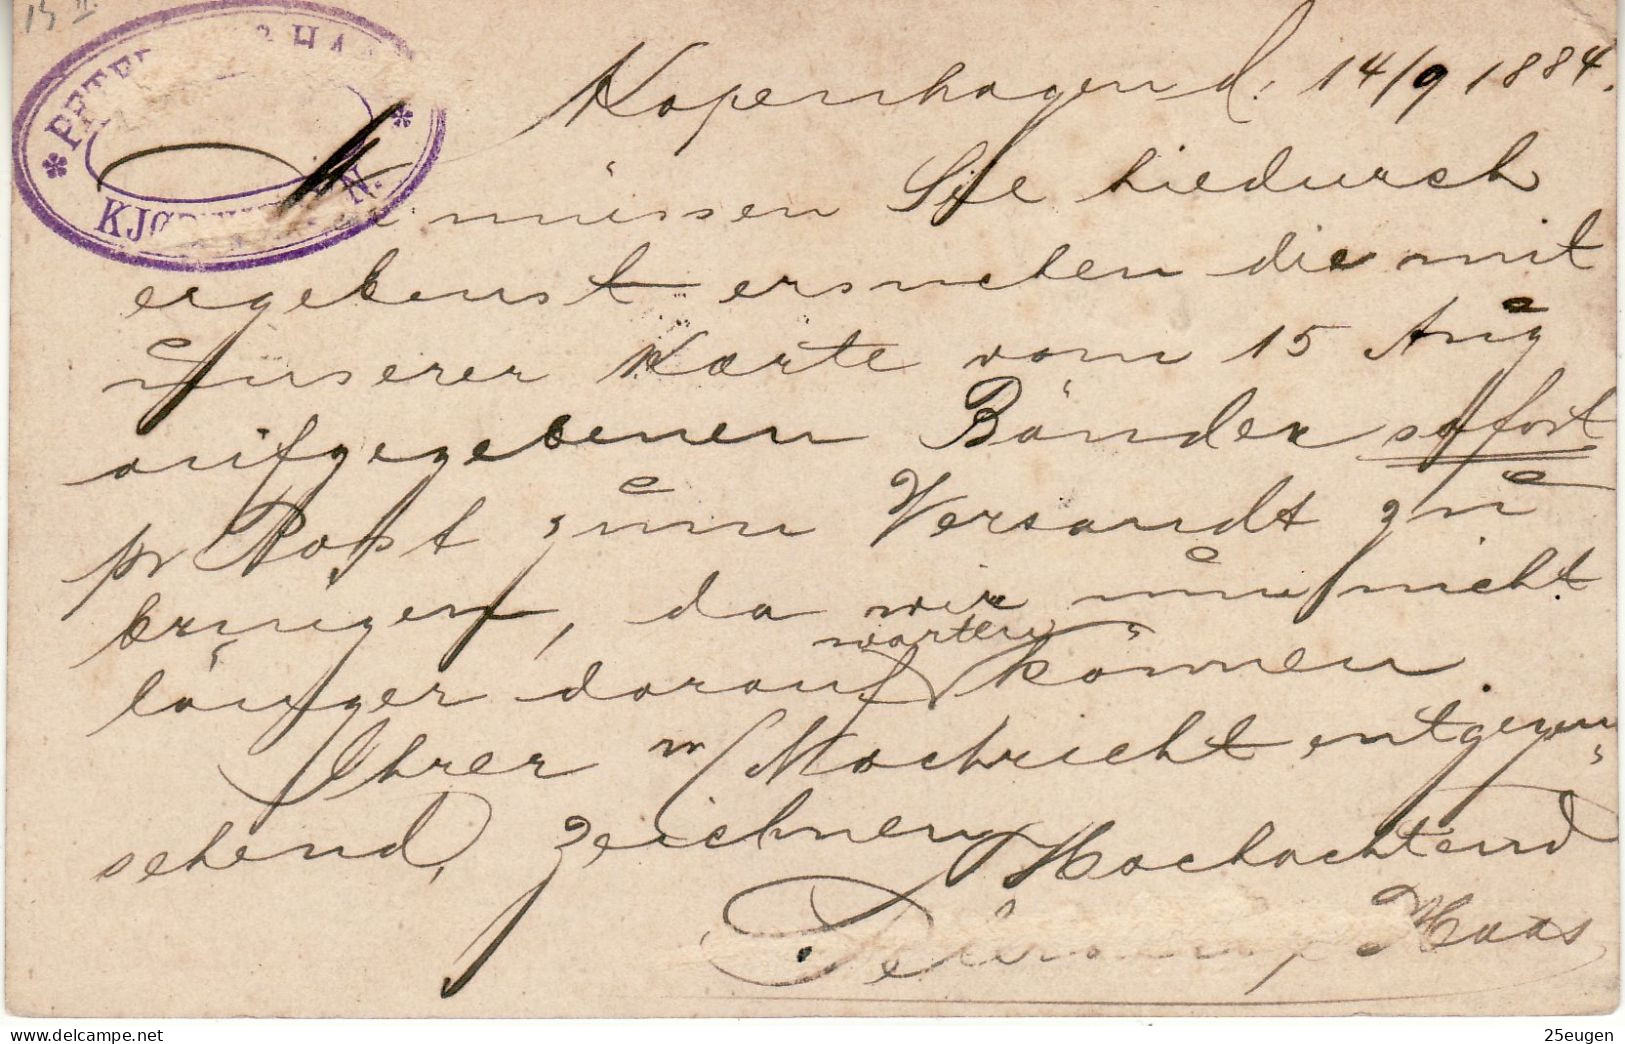 15 II.
PETER HAA
KJØ N.
Kopenhagen d. 14/9 1884.
müssen Sie hiedurch
ergebenst ersuchen die mit
unserer Karte vom 15 Aug
aufgegebenen Bänder sofort
pr Post zum Versandt zu
bringen, da wir nun nicht
länger darauf warten können.
Ihrer Nachricht entgegen
sehend, zeichnen
Hochachtend
Haas
25eugen